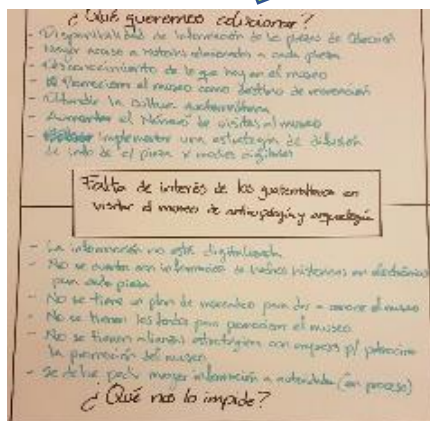 ¿Qué queremos solucionar?
- Disponibilidad de información de la piezas de colección
- Mayor acceso a historias relacionadas a cada pieza
- Desconocimiento de lo que hay en el museo
- Promocionar el museo como destino de recreación
- Difundir la cultura guatemalteca
- Aumentar el Número de visitas al museo
- implementar una estrategia de difusión
de info de c/ pieza x medios digitales
Falta de interés de los guatemaltecos en
visitar el museo de antropología y arqueología
- La información no está digitalizada
- No se cuenta con información de hechos históricos en electrónico
para cada pieza
- No se tiene un plan de mercadeo para dar a conocer el museo
- No se tienen los fondos para promocionar el museo
- No se tienen alianzas estratégicas con empresas p/ patrocinar
la promoción del museo
- Se debe pedir mayor información a autoridades (en proceso)
¿Qué nos lo impide?